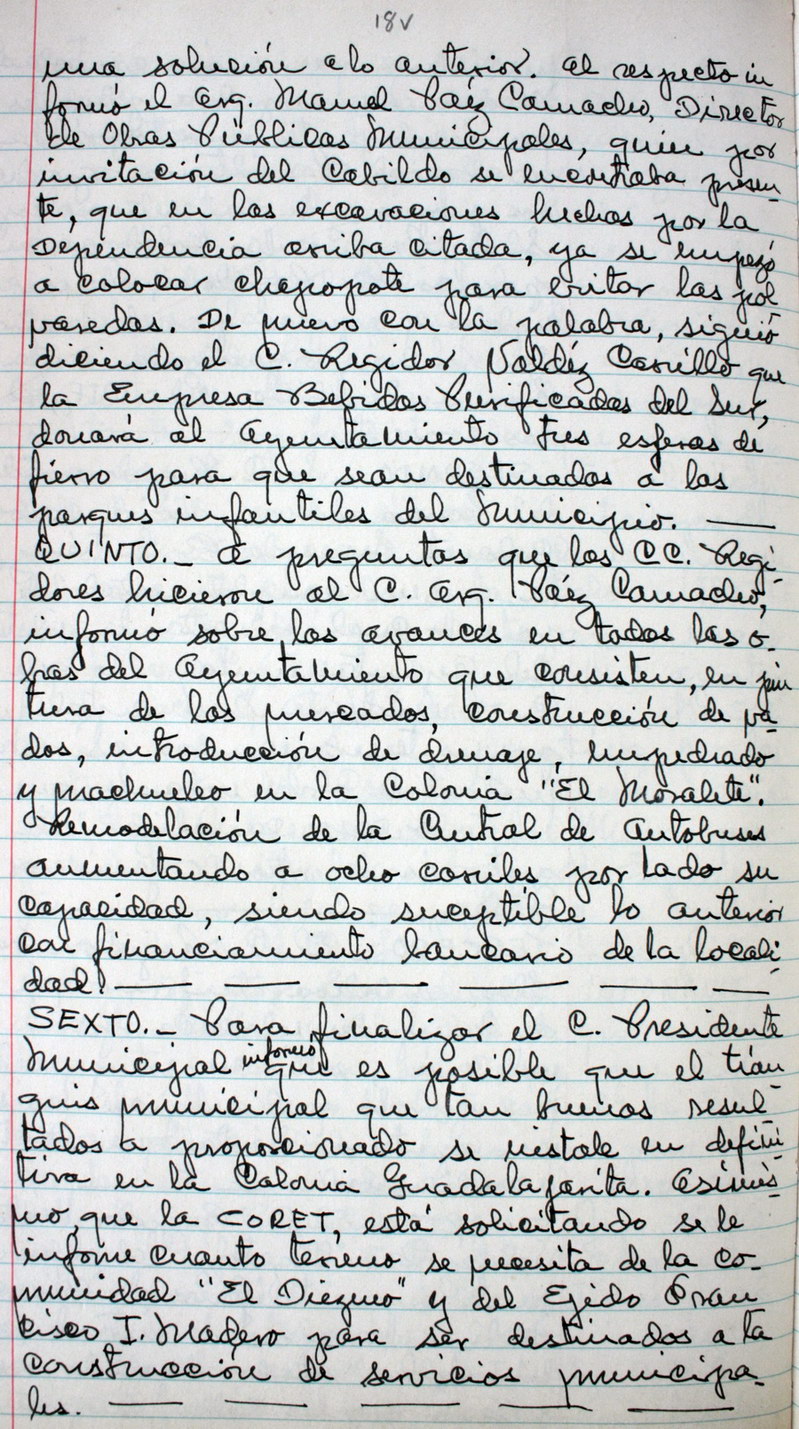 18v
una solución a lo anterior. al respecto in
formó el Arq. Manuel Páez Camacho, Director
de Obras Públicas Municipales, quien por
invitación del Cabildo se encontraba presen
te, que en las excavaciones hechas por la
Dependencia arriba citada, ya se empezó
a colocar chapopote para evitar las pol
varedas. De nuevo con la palabra, siguió
diciendo el C. Regidor Valdéz Carrillo que
la Empresa Bebidas Purificadas del Sur,
donará al Ayuntamiento tres esferas de
fierro para que sean destinados a los
parques infantiles del Municipio. ——
QUINTO._ a preguntas que los CC. Regi
dores hicieron al C. Arq. Páez Camacho,
informó sobre los avances en todas las o-
bras del Ayuntamiento que consisten, en pin
tura de los mercados, construcción de va-
dos, introducción de drenaje, empedrado
y machueleo en la Colonia "El Moralete".
Remodelación de la Central de Autobuses
aumentando a ocho carriles por lado su
capacidad, siendo suceptible lo anterior
con financiamiento bancario de la locali
dad. —— —— —— —— —— ——
SEXTO._ Para finalizar el C. Presidente
Municipal informó que es posible que el tian
guis municipal que tan buenos resul-
tados a proporcionado se instale en defini
tiva en la Colonia Guadalajarita. Asimis
mo, que la CORET, está solicitando se le
informe cuanto terreno se necesita de la co-
munidad "El Diezmo" y del Ejido Fran
cisco I. Madero para ser destinados a la
construcción de servicios municipa-
les. —— —— —— —— ——